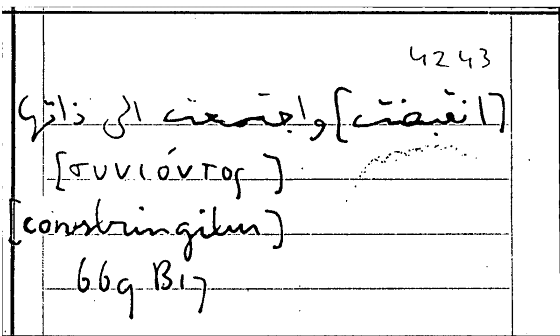 4243
[انقبضت] واجتمعت الى ذاتها
[συνιόντος]
[constringitur]
669 B17